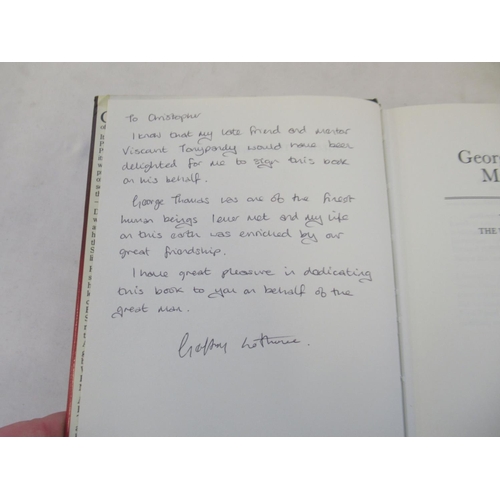 To Christopher
I know that my late friend and mentor
Viscant Tonypandy would have been
delighted for me to sign this book
on his behalf.
George Thomas was one of the finest
human beings I ever met and my life
on this earth was enriched by our
great friendship.
I have great pleasure in dedicating
this book to you on behalf of the
great man.
Geor
M
THE